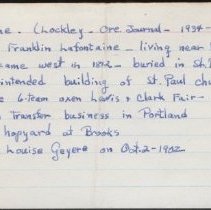 ne. (Lockley - Ore Journal - 1934-
Franklin Lafontaine - living near
came west in 1852 - buried in St. P
intended building of St. Paul chu
e 6-team oxen Lewis & Clark Fair -
Transfer business in Portland
hopyard at Brooks
Louise Geyere on Oct-2-1902